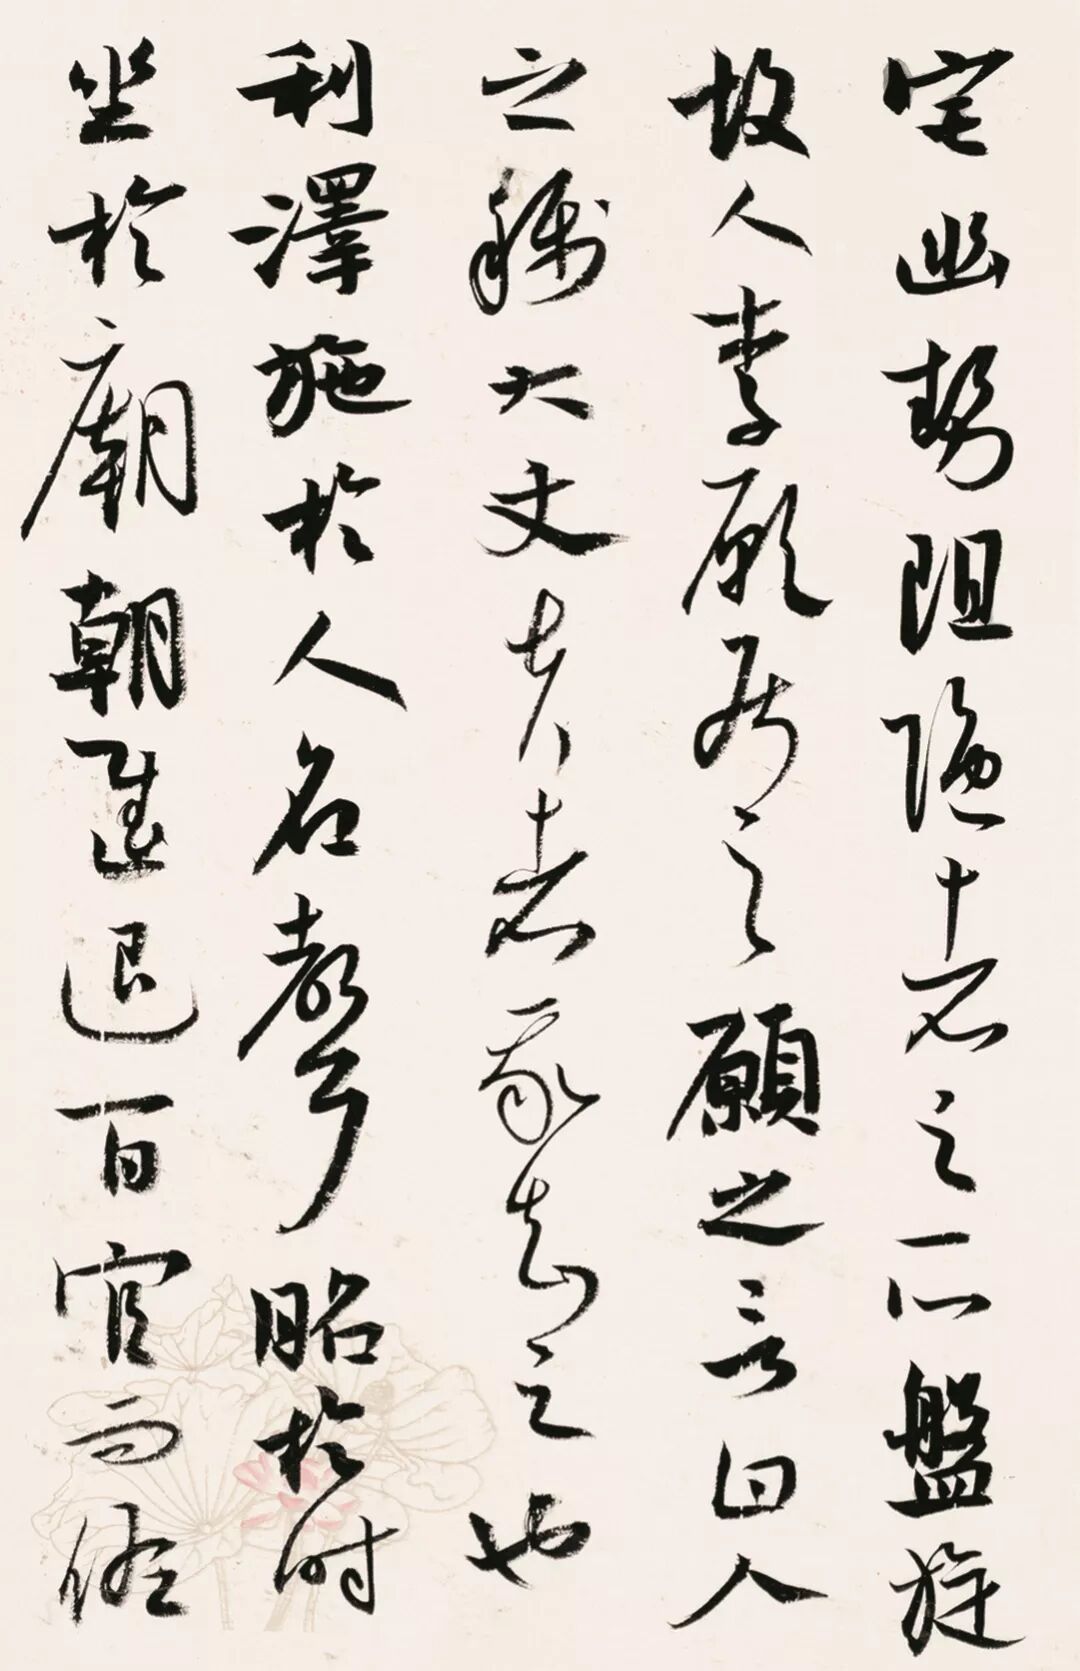 宅幽勢阻隱者之所盤旋
故人李願居之願之言曰人
之稱大丈夫者我知之也
利澤施於人名聲昭於時
坐於廟朝進退百官而佐